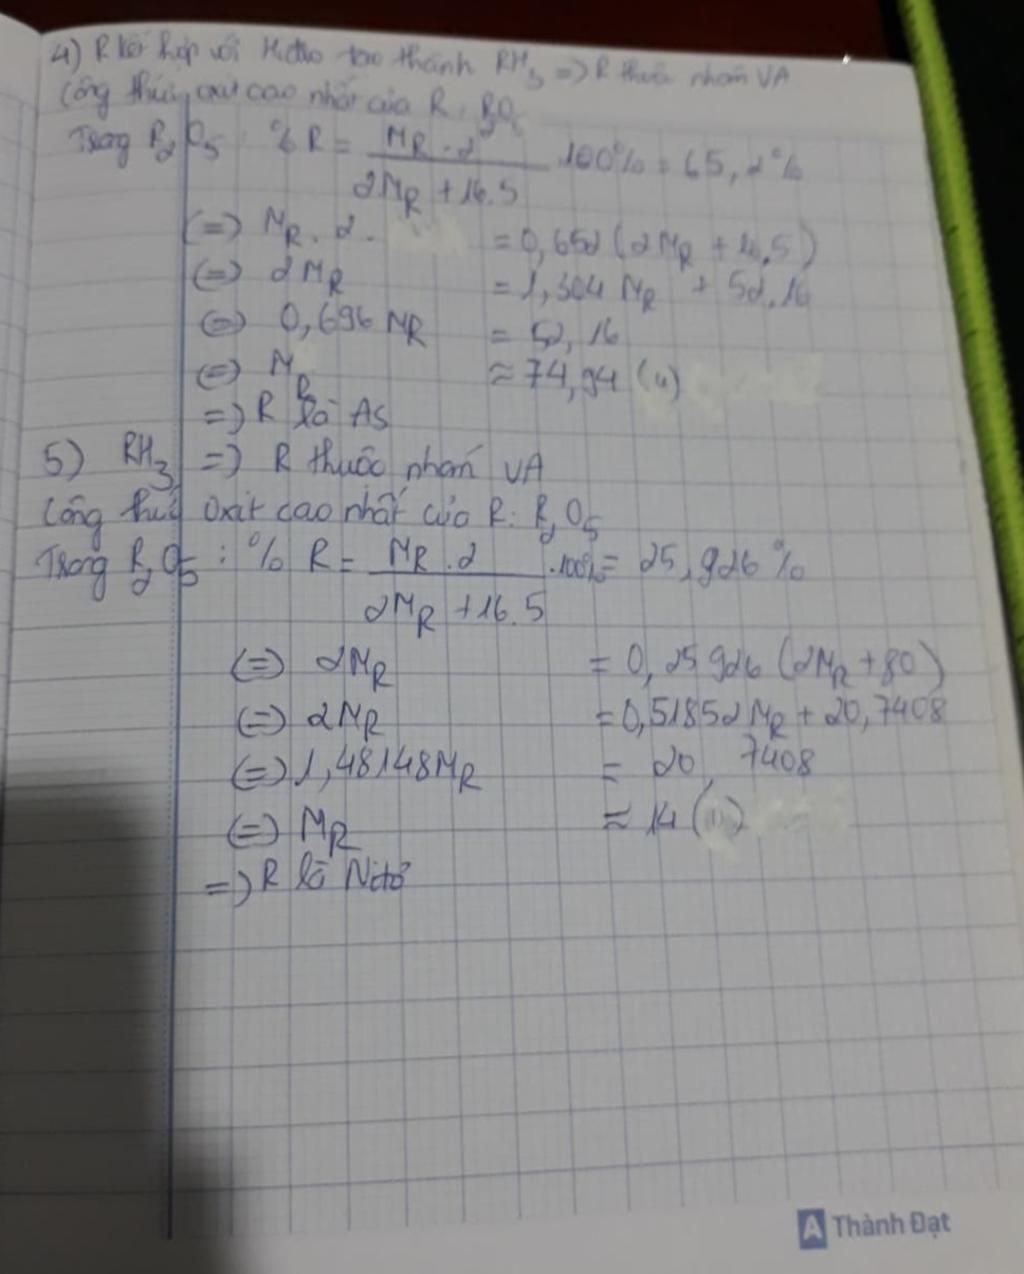 4) R kết hợp với Hiđro tạo thành RH3 => R thuộc nhóm VA
Công thức oxit cao nhất của R: R2O5
Trong R2O5: % R = MR . 2 / 2MR + 16.5 . 100% = 65,2%
<=> MR . 2 . = 0,652 (2MR + 16.5)
<=> 2MR = 1,304 MR + 52,16
<=> 0,696 MR = 52,16
<=> MR ≈ 74,94 (u)
=> R là As
5) RH3 => R thuộc nhóm VA
Công thức oxit cao nhất của R: R2O5
Trong R2O5: % R = MR . 2 / 2MR + 16.5 . 100% = 25,926%
<=> 2MR = 0,25926 (2MR + 80)
<=> 2MR = 0,51852MR + 20,7408
<=> 1,48148MR = 20,7408
<=> MR ≈ 14 (u)
=> R là Nitơ
A Thành Đạt